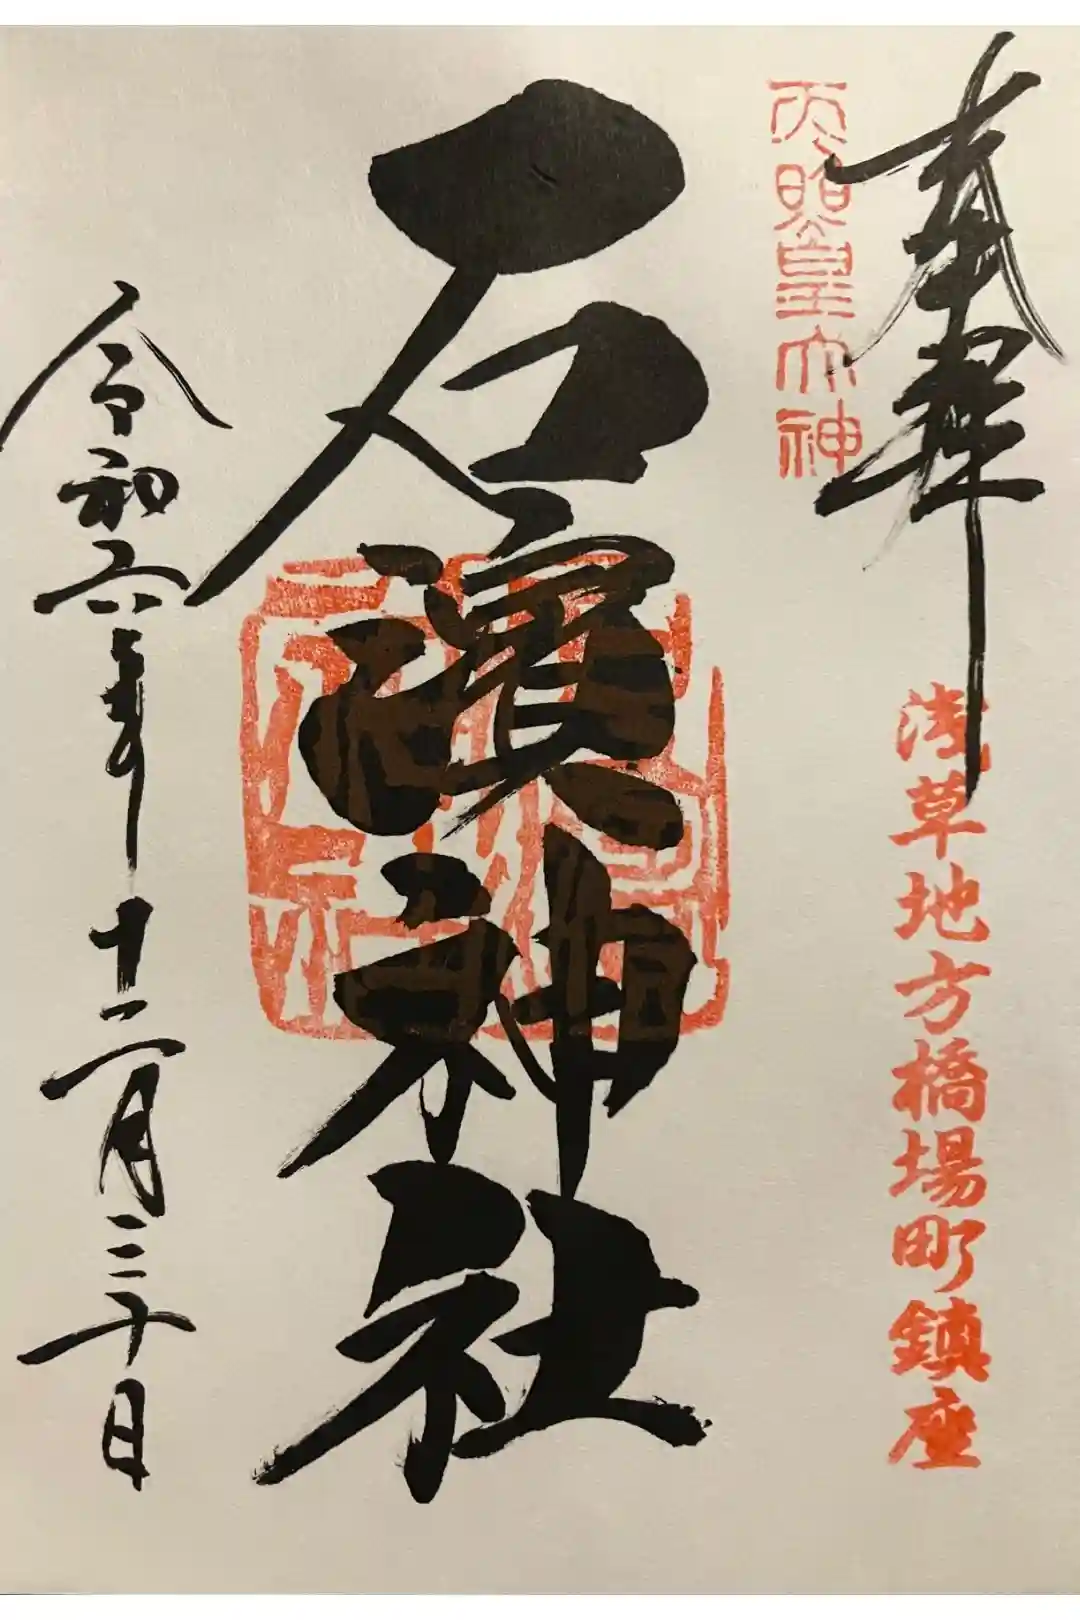 奉拜
天照皇大神
浅草地方橋場町鎮座
石濱神社
令和六年十二月三十日